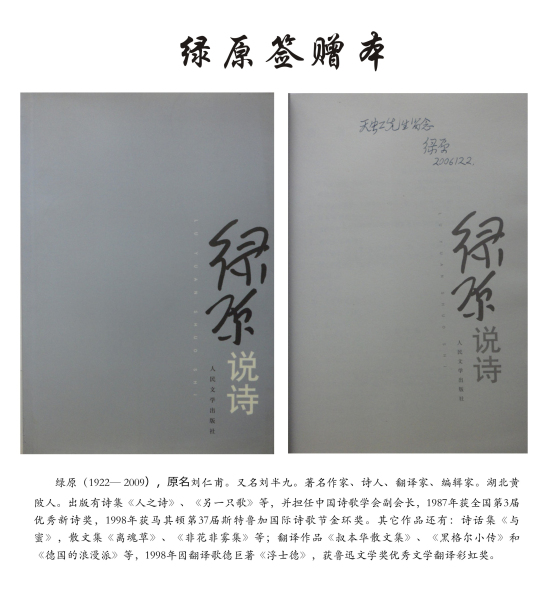 绿原签赠本
绿原
说诗
人民文学出版社
天虫工先生留念
绿原
2006122
绿原
说诗
人民文学出版社
绿原（1922—2009），原名刘仁甫。又名刘半九。著名作家、诗人、翻译家、编辑家。湖北黄
陂人。出版有诗集《人之诗》、《另一只歌》等，并担任中国诗歌学会副会长，1987年获全国第3届
优秀新诗奖，1998年获马其顿第37届斯特鲁加国际诗歌节金环奖。其它作品还有：诗话集《与
蜜》，散文集《离魂草》、《非花非雾集》等；翻译作品《叔本华散文集》、《黑格尔小传》和
《德国的浪漫派》等，1998年因翻译歌德巨著《浮士德》，获鲁迅文学奖优秀文学翻译彩虹奖。